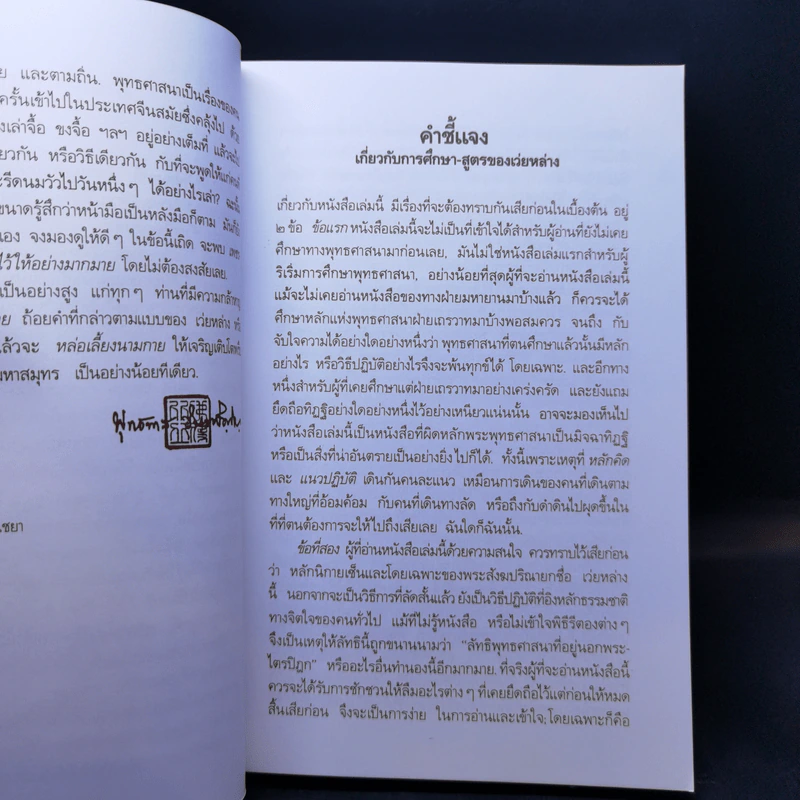 ย และตามถิ่น. พุทธศาสนาเป็นเรื่องของคน
ครั้นเข้าไปในประเทศจีนสมัยซึ่งคลุ้งไป ด้วย
งเล่าจื้อ ขงจื้อ ฯลฯ อยู่อย่างเต็มที่ แล้วจะไป
ยวกัน หรือวิธีเดียวกัน กับที่จะพูดให้แก่คนที่
ะรีดนมวัวไปวันหนึ่งๆ ได้อย่างไรเล่า? ฉะนั้น
ขนาดรู้สึกว่าหน้ามือเป็นหลังมือก็ตาม มันก็ยัง
เอง จงมองดูให้ดีๆ ในข้อนี้เถิด จะพบ เพชร
ไว้ให้อย่างมากมาย โดยไม่ต้องสงสัยเลย.
เป็นอย่างสูง แก่ทุกๆ ท่านที่มีความกล้าหาญ
ย ถ้อยคำที่กล่าวตามแบบของ เว่ยหล่าง
ล้วจะ หล่อเลี้ยงนามกาย ให้เจริญเติบโต
มหาสมุทร เป็นอย่างน้อยทีเดียว.
ไชยา
คำชี้แจง
เกี่ยวกับการศึกษา-สูตรของเว่ยหล่าง
เกี่ยวกับหนังสือเล่มนี้ มีเรื่องที่จะต้องทราบกันเสียก่อนในเบื้องต้น อยู่
๒ ข้อ ข้อแรก หนังสือเล่มนี้จะไม่เป็นที่เข้าใจได้สำหรับผู้อ่านที่ยังไม่เคย
ศึกษาทางพุทธศาสนามาก่อนเลย, มันไม่ใช่หนังสือเล่มแรกสำหรับผู้
ริเริ่มการศึกษาพุทธศาสนา, อย่างน้อยที่สุดผู้ที่จะอ่านหนังสือเล่มนี้
แม้จะไม่เคยอ่านหนังสือของทางฝ่ายมหายานมาบ้างแล้ว ก็ควรจะได้
ศึกษาหลักแห่งพุทธศาสนาฝ่ายเถรวาทมาบ้างพอสมควร จนถึง กับ
จับใจความได้อย่างใดอย่างหนึ่งว่า พุทธศาสนาที่ตนศึกษาแล้วนั้นมีหลัก
อย่างไร หรือวิธีปฏิบัติอย่างไรจึงจะพ้นทุกข์ได้ โดยเฉพาะ. และอีกทาง
หนึ่งสำหรับผู้ที่เคยศึกษาแต่ฝ่ายเถรวาทมาอย่างเคร่งครัด และยังแถม
ยึดถือทิฏฐิอย่างใดอย่างหนึ่งไว้อย่างเหนียวแน่นนั้น อาจจะมองเห็นไป
ว่าหนังสือเล่มนี้เป็นหนังสือที่ผิดหลักพระพุทธศาสนาเป็นมิจฉาทิฏฐิ
หรือเป็นสิ่งที่น่าอันตรายเป็นอย่างยิ่ง ไปก็ได้. ทั้งนี้เพราะเหตุที่ หลักคิด
และ แนวปฏิบัติ เดินกันคนละแนว เหมือนการเดินของคนที่เดินตาม
ทางใหญ่ที่อ้อมค้อม กับคนที่เดินทางลัด หรือถึงกับดำดินไปผุดขึ้นใน
ที่ที่ตนต้องการจะให้ไปถึงเสียเลย ฉันใดก็ฉันนั้น.
ข้อที่สอง ผู้ที่อ่านหนังสือเล่มนี้ด้วยความสนใจ ควรทราบไว้เสียก่อน
ว่า หลักนิกายเซ็นและโดยเฉพาะของพระสังฆปริณายกชื่อ เว่ยหล่าง
นี้ นอกจากจะเป็นวิธีการที่ลัดสั้นแล้ว ยังเป็นวิธีปฏิบัติที่อิงหลักธรรมชาติ
ทางจิตใจของคนทั่วไป แม้ที่ไม่รู้หนังสือ หรือไม่เข้าใจพิธีรีตองต่างๆ
จึงเป็นเหตุให้ลัทธินี้ถูกขนานนามว่า "ลัทธิพุทธศาสนาที่อยู่นอกพระ-
ไตรปิฎก" หรืออะไรอื่นทำนองนี้อีกมากมาย. ที่จริงผู้ที่จะอ่านหนังสือนี้
ควรจะได้รับการชักชวนให้ลืมอะไรต่างๆ ที่เคยยึดถือไว้แต่ก่อนให้หมด
สิ้นเสียก่อน จึงจะเป็นการง่าย ในการอ่านและเข้าใจ; โดยเฉพาะก็คือ